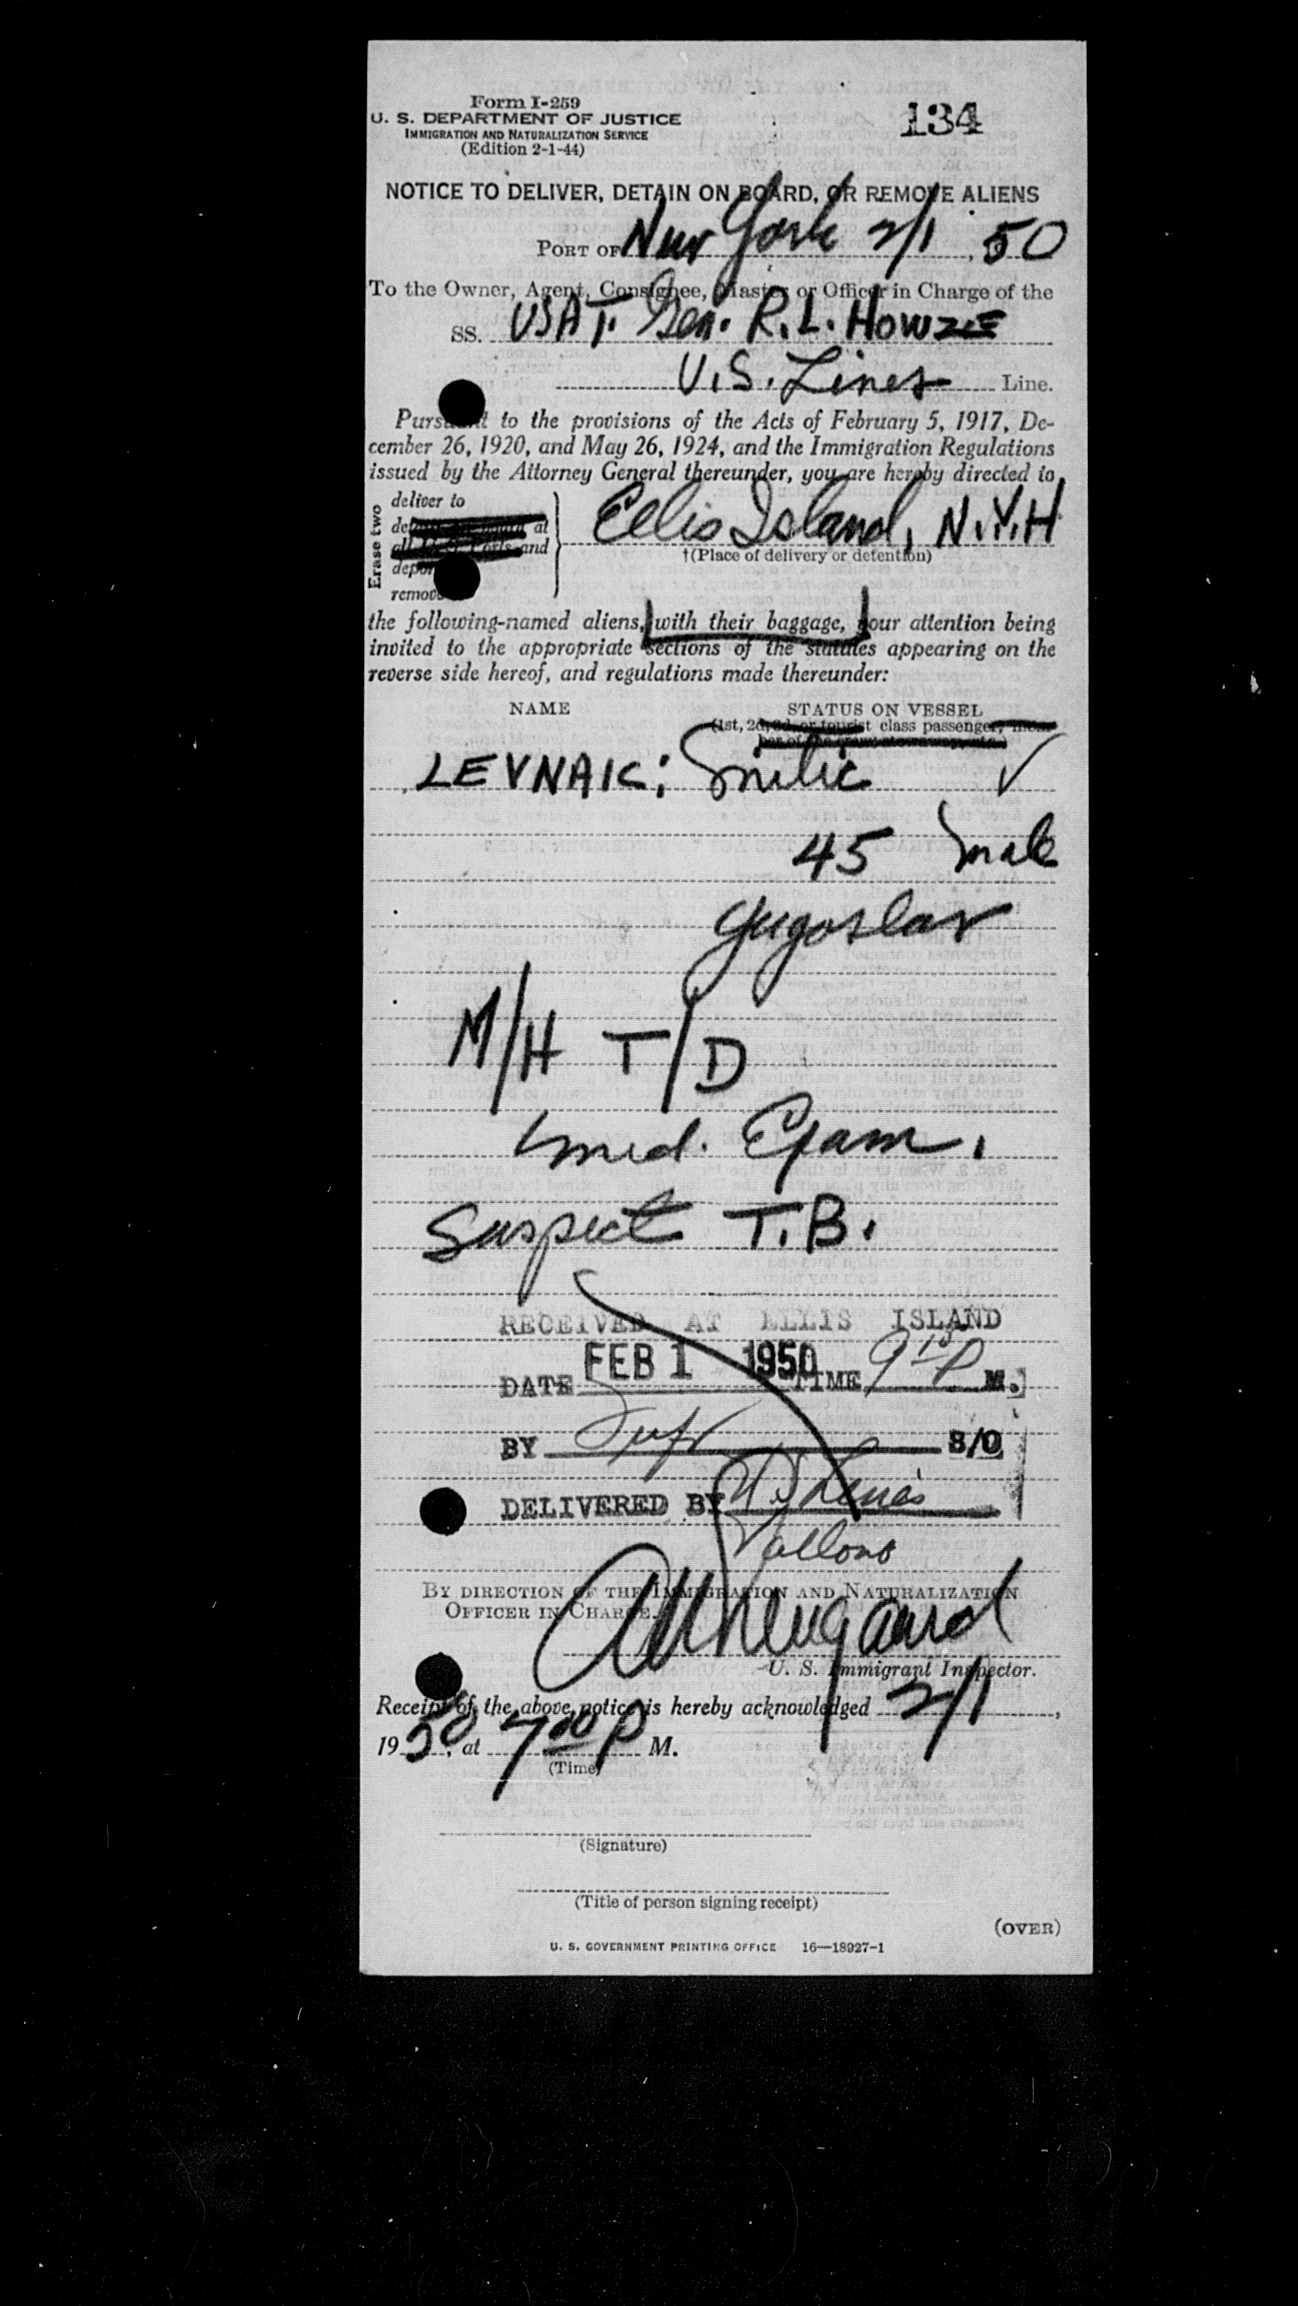 Form I-259
U. S. DEPARTMENT OF JUSTICE
IMMIGRATION AND NATURALIZATION SERVICE
(Edition 2-1-44)
134
NOTICE TO DELIVER, DETAIN ON BOARD, OR REMOVE ALIENS
PORT OF New York 2/1, 50
To the Owner, Agent, Consignee, Master or Officer in Charge of the
SS. USAT. Gen. R.L. HOWZE
U.S. Lines Line.
Pursuant to the provisions of the Acts of February 5, 1917, De-
cember 26, 1920, and May 26, 1924, and the Immigration Regulations
issued by the Attorney General thereunder, you are hereby directed to
Erase two
deliver to
at
and
Ellis Island, N.Y.H
†(Place of delivery or detention)
the following-named aliens, with their baggage, your attention being
invited to the appropriate sections of the statutes appearing on the
reverse side hereof, and regulations made thereunder:
NAME STATUS ON VESSEL
(1st, 2d, 3d, or tourist class passenger,
LEVNAIC:
45 male
Yugoslav
M/H T/D
med. Exam.
Suspect T.B.
RECEIVED AT ELLIS ISLAND
DATE FEB 1 1950 TIME 9 15 P M.
BY S/O
DELIVERED BY US Lines
BY DIRECTION OF THE IMMIGRATION AND NATURALIZATION
OFFICER IN CHARGE.
U. S. Immigrant Inspector.
Receipt of the above notice is hereby acknowledged 2/1,
19 50, at 7 00 P M.
(Time)
(Signature)
(Title of person signing receipt)
(OVER)
U. S. GOVERNMENT PRINTING OFFICE 16—18927-1